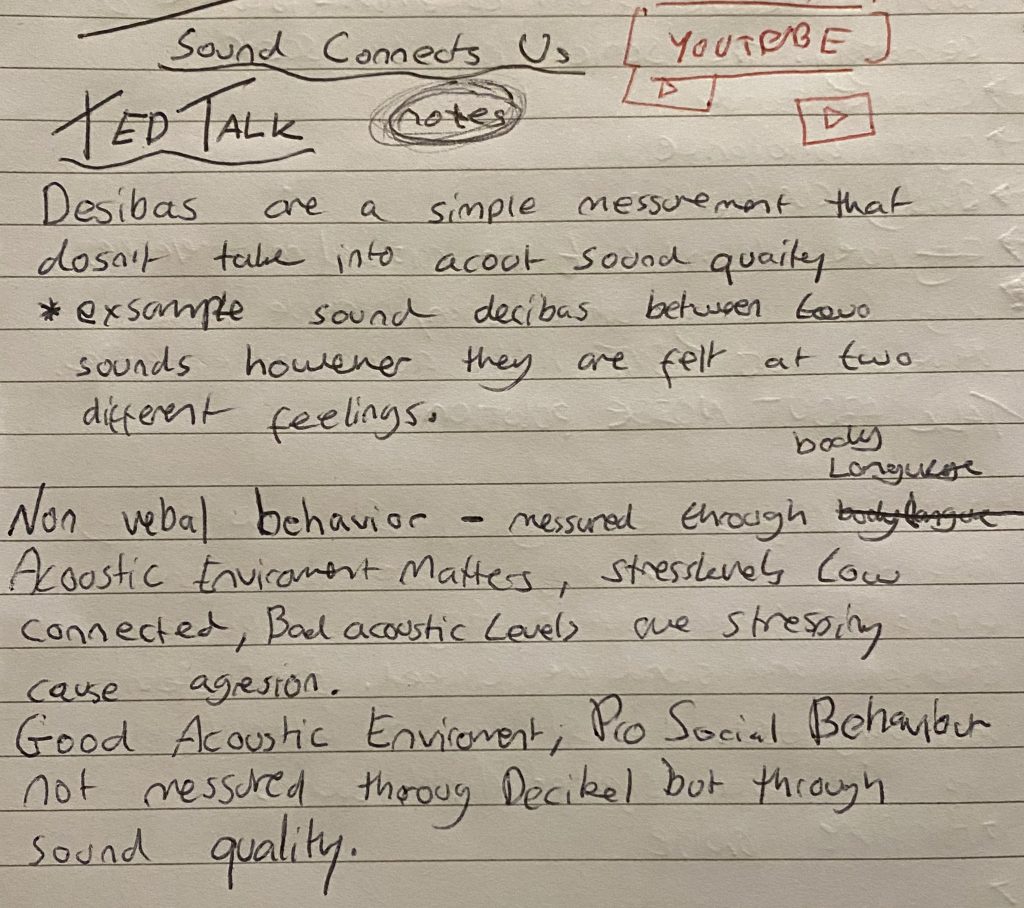 Sound Connects Us
YOUTUBE
TED TALK
notes
Desibas are a simple messurement that
dosn't take into acoot sound quaity
* exsample sound decibas between two
sounds however they are felt at two
different feelings.
body
Language
Non vebal behavior - messured through
Acoostic Enviroment Matters, stresslevels Low
connected, Bad acoustic Levels are stressing
cause agresion.
Good Acoustic Enviroment, Pro Social Behaviour
not messured throug Decibel but through
sound quality.